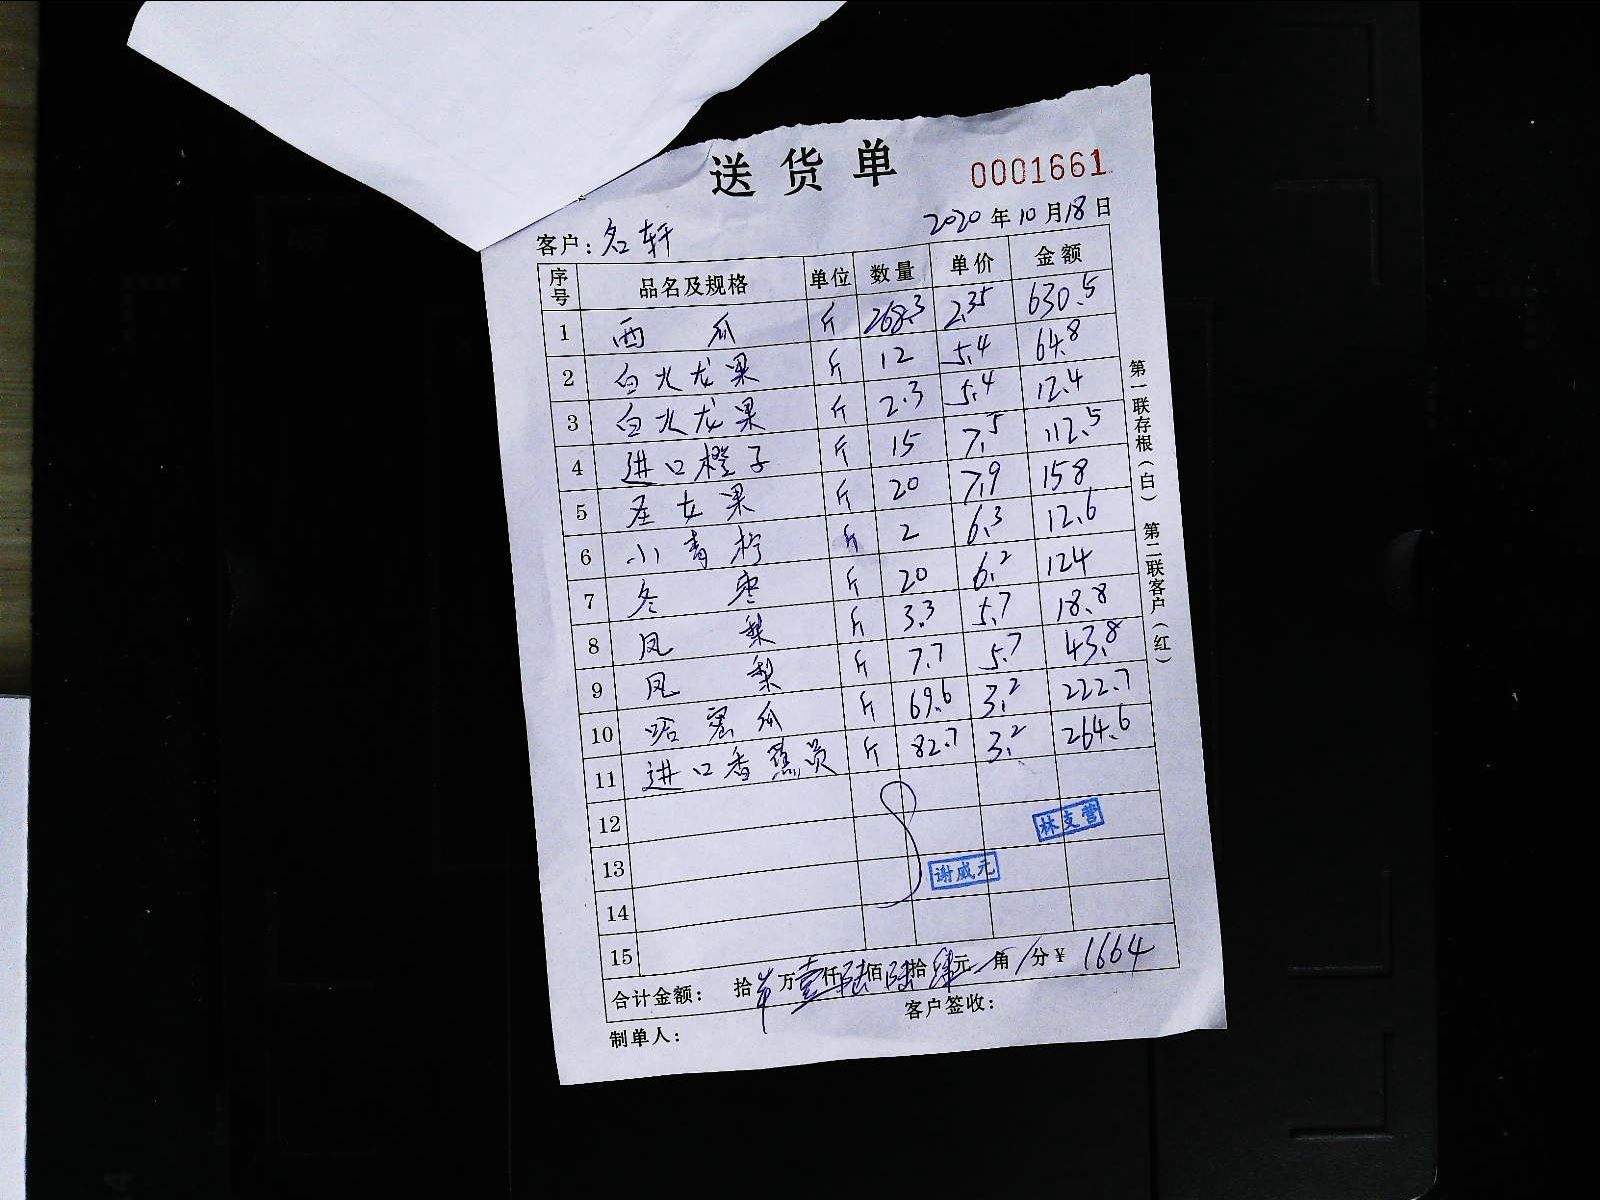 送货单 0001661
客户: 名轩 2020年10月18日
序号 品名及规格 单位 数量 单价 金额
1 西瓜 斤 268.3 2.35 630.5
2 白火龙果 斤 12 5.4 64.8
3 白火龙果 斤 2.3 5.4 12.4
4 进口橙子 斤 15 7.5 112.5
5 圣女果 斤 20 7.9 158
6 小青柠 斤 2 6.3 12.6
7 冬枣 斤 20 6.2 124
8 凤梨 斤 3.3 5.7 18.8
9 凤梨 斤 7.7 5.7 43.8
10 哈密瓜 斤 69.6 3.2 222.7
11 进口香蕉 斤 82.7 3.2 264.6
12
林支营
13
谢威元
14
15
合计金额: 拾 万壹仟陆佰陆拾肆元 角 分 ¥ 1664
制单人: 客户签收:
第一联存根(白) 第二联客户(红)